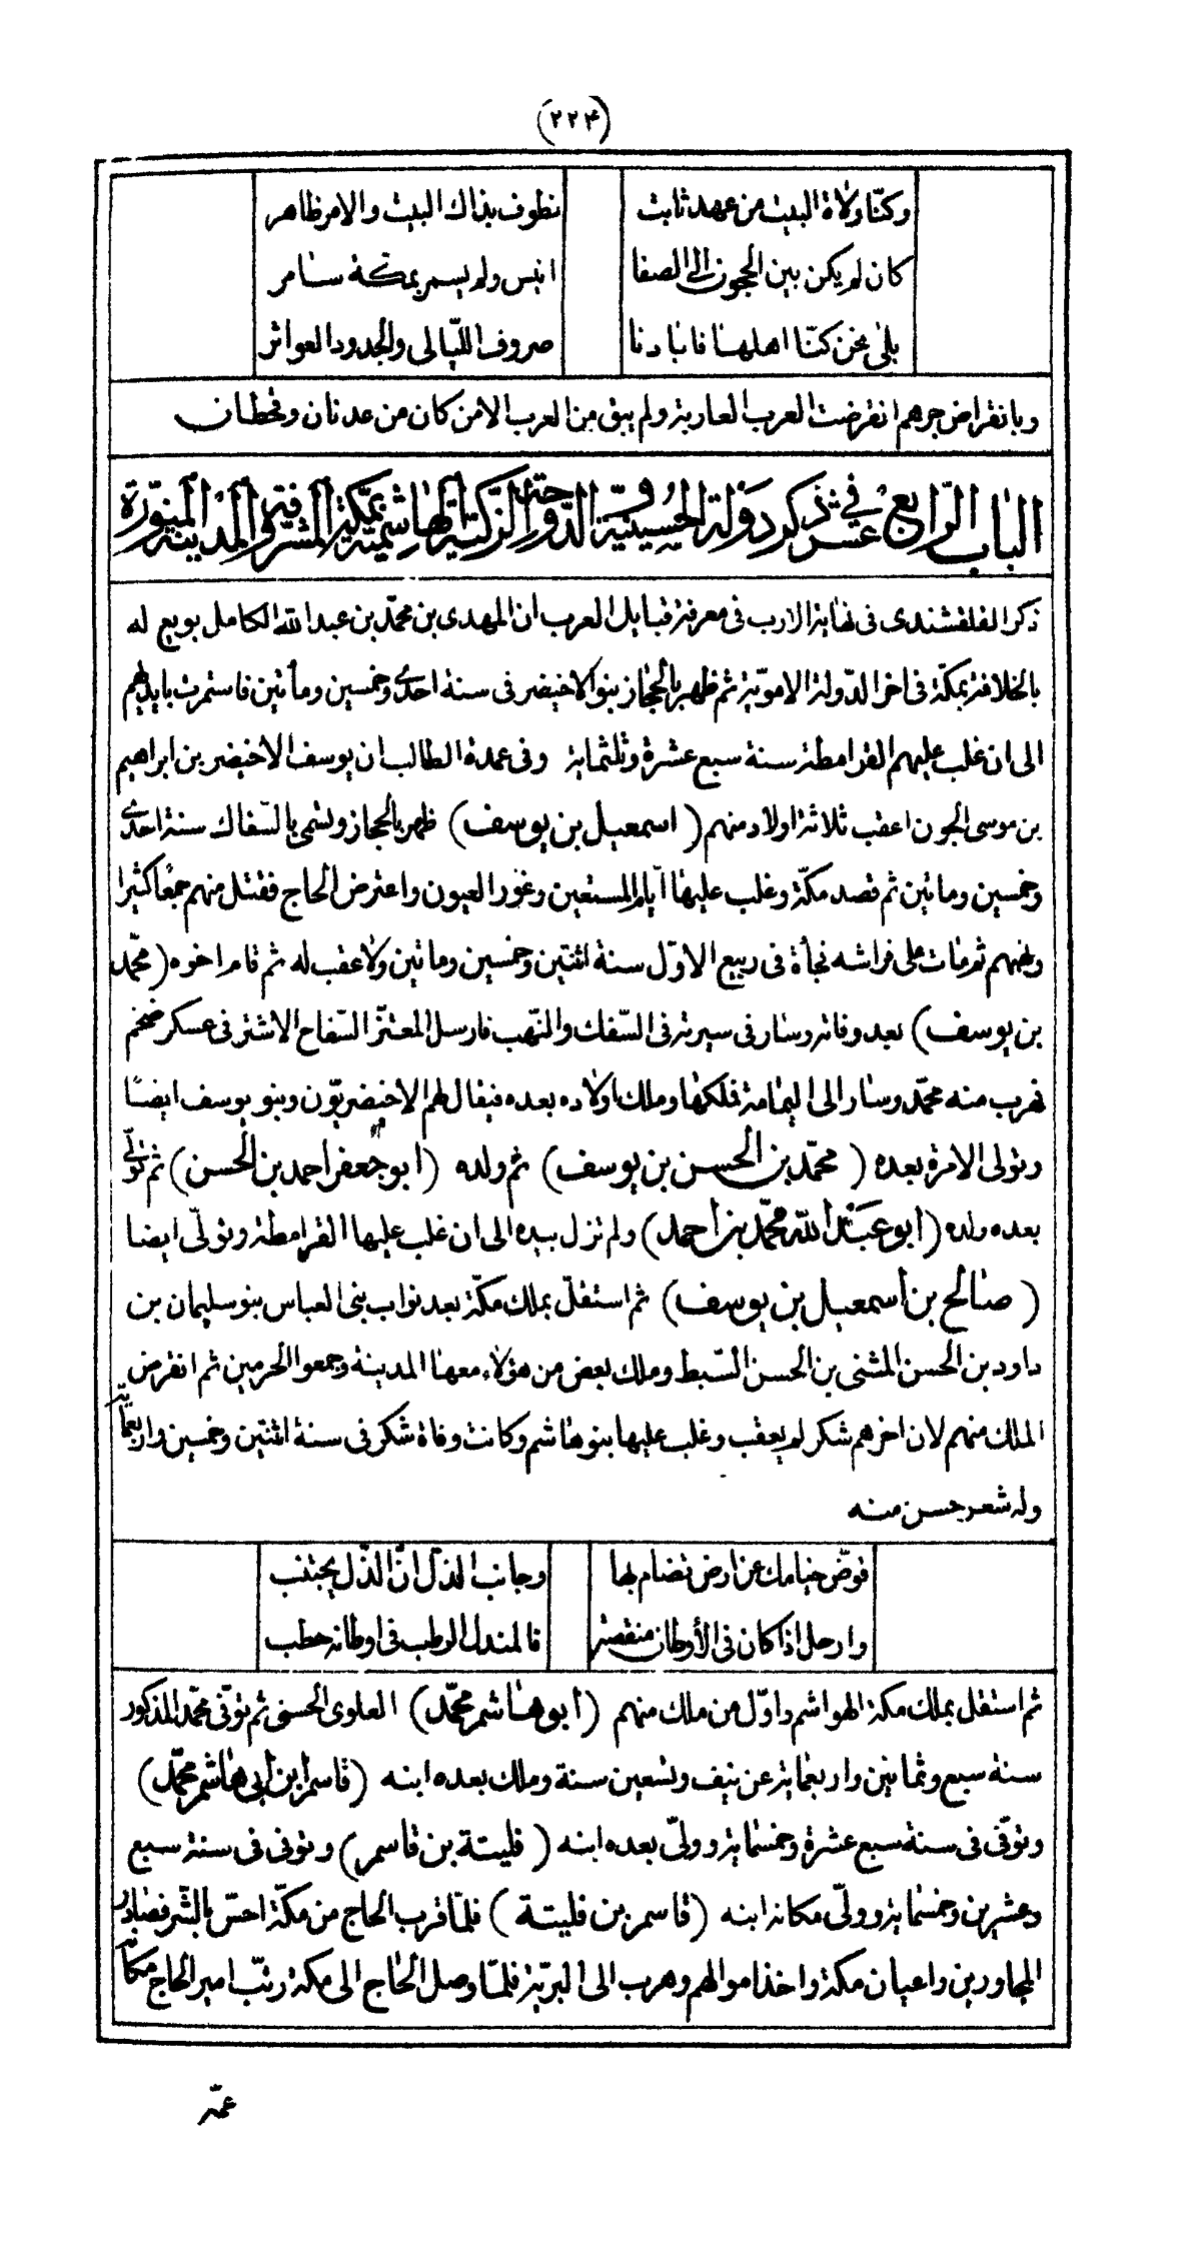 (٢٢۴)
وكنّا ولاة البيت من عهد ثابت نطوف بذاك البيت والامر ظاهر
كان لم يكن بين الحجون الى الصفا انيس ولم يسمر بمكة سامر
بلى نحن كنّا اهلها فابادنا صروف اللّيالى والجدود العواثر
وبانقراض جرهم انقرضت العرب العاربة ولم يبق من العرب الا من كان من عدنان وقحطان
الباب الرّابع عشر فى ذكر دولة الحُسينيّة وفى الدّوحة الزّكيّة الهاشميّة بمكّة المشرفة والمدينة المنوّرة
ذكر القلقشندى فى نهاية الارب فى معرفة قبايل العرب ان المهدى بن محمّد بن عبد الله الكامل بويع له
بالخلافة بمكّة فى اخر الدّولة الامويّة ثم ظهر بالحجاز بنو الاخيضر فى سنة احدى وخمسين ومأتين فاستمرت بايديهم
الى ان غلب عليهم القرامطة سنة سبع عشرة وثلثماية وفى عمدة الطالب ان يوسف الاخيضر بن ابراهيم
بن موسى الجون اعقب ثلاثة اولاد منهم (اسمعيل بن يوسف) ظهر بالحجاز وسمى بالسّفاك سنة احدى
وخمسين وماتين ثم قصد مكّة وغلب عليها ايام المستعين وغوّر العيون واعترض الحاج فقتل منهم جمعًا كثيرا
ونهبهم ثم مات على فراشه فجأة فى ربيع الاوّل سنة اثنتين وخمسين وماتين ولا عقب له ثم قام اخوه (محمّد
بن يوسف) بعد وفاته وسار فى سيرته فى السّفك والنّهب فارسل المعتزّ السّفاح الاشتر فى عسكر ضخم
فهرب منه محمّد وسار الى اليمامة فملكها وملك اولاده بعده فيقال لهم الاخيضريّون وبنو يوسف ايضًا
وتولى الامرة بعده (محمّد بن الحسن بن يوسف) ثم ولده (ابو جعفر احمد بن الحسن) ثم تولّى
بعده ولده (ابو عبد الله محمّد بن احمد) ولم تزل بيده الى ان غلب عليها القرامطة وتولّى ايضا
(صالح بن اسمعيل بن يوسف) ثم استقلّ بملك مكّة بعد نواب بنى العباس بنو سليمان بن
داود بن الحسن المثنى بن الحسن السّبط وملك بعض من هؤلاء معها المدينة وجمعوا الحرمين ثم انقرض
الملك منهم لان اخرهم شكر لم يعقب وغلب عليها بنو هاشم وكانت وفاة شكر فى سنة اثنتين وخمسين واربعماية
وله شعر حسن منه
قوّض خيامك عن ارض تضام بها وجانب الذلّ انّ الذّل يجتنب
وارحل اذا كان فى الأوطان منقصة فالمندل الرطب فى اوطانه حطب
ثم استقل بملك مكة الهواشم واوّل من ملك منهم (ابو هاشم محمّد) العلوى الحسنى ثم توفّى محمّد المذكور
سنة سبع وثمانين واربعماية عن نيف وتسعين سنة وملك بعده ابنه (قاسم ابن ابى هاشم محمّد)
وتوفّى فى سنة سبع عشرة وخمسماية وولىّ بعده ابنه (فليتة بن قاسم) وتوفى فى سنة سبع
وعشرين وخمسماية وولّى مكانه ابنه (قاسم بن فليتة) فلمّا قرب الحاج من مكّة احسّ بالشّر فصادر
المجاورين واعيان مكة واخذ اموالهم وهرب الى البريّة فلمّا وصل الحاج الى مكة رتّب امير الحاج مكانه
عمّه